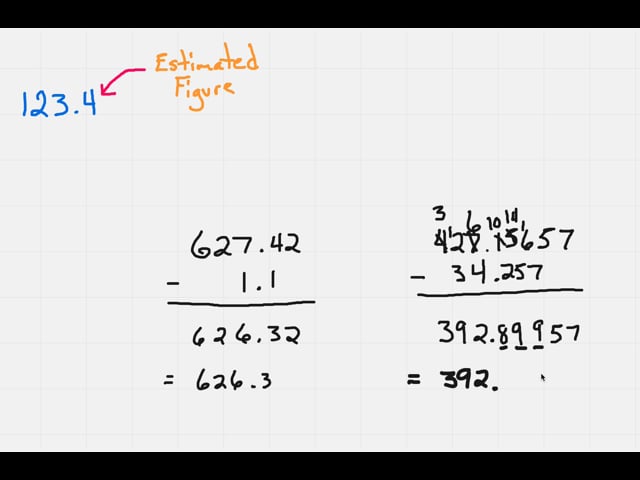 Estimated
Figure
123.4
627.42
- 1.1
626.32
= 626.3
3 1 6 10 14 1
427.15657
- 34.257
392.89957
= 392.